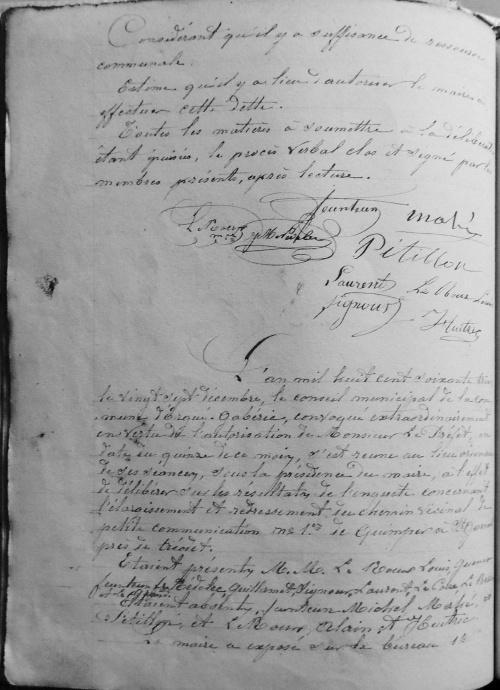 Considérant qu'il y a suffisance de ressources
communale.
Estime qu'il y a lieu d'autoriser le maire à
effectuer cette dette.
Toutes les matières à soumettre à la délibérat
étant épuisées, le procès verbal clos et signé par les
membres présents, après lecture.
Jeuntun Mahé
Pétillon
Laurent Le
Signour Huitric
L'an mil huit cent soixante trois
le vingt sept décembre, le conseil municipal de la com
mune d'Ergué-Gabéric, convoqué extraordinairement
en vertu de l'autorisation de Monsieur Le Préfet, en
date du quinze de ce mois, s'est réuni au lieu ordinaire
de ses séances, sous la présidence du maire, à l'effet
de délibérer sur les résultats de l'enquête concernant
l'élargissement et redressement du chemin vicinal de
petite communication no 1er de Quimper à
près de Trédit.
Etaient présents M. M. Le Roux Louis
Guillamet, Signour, Laurent, Le
et Le
Etaient absents, Jeuntun Michel, Mahé,
Pétillon, et Le Roux Alain et Huitric
Le maire a exposé sur le bureau 1º